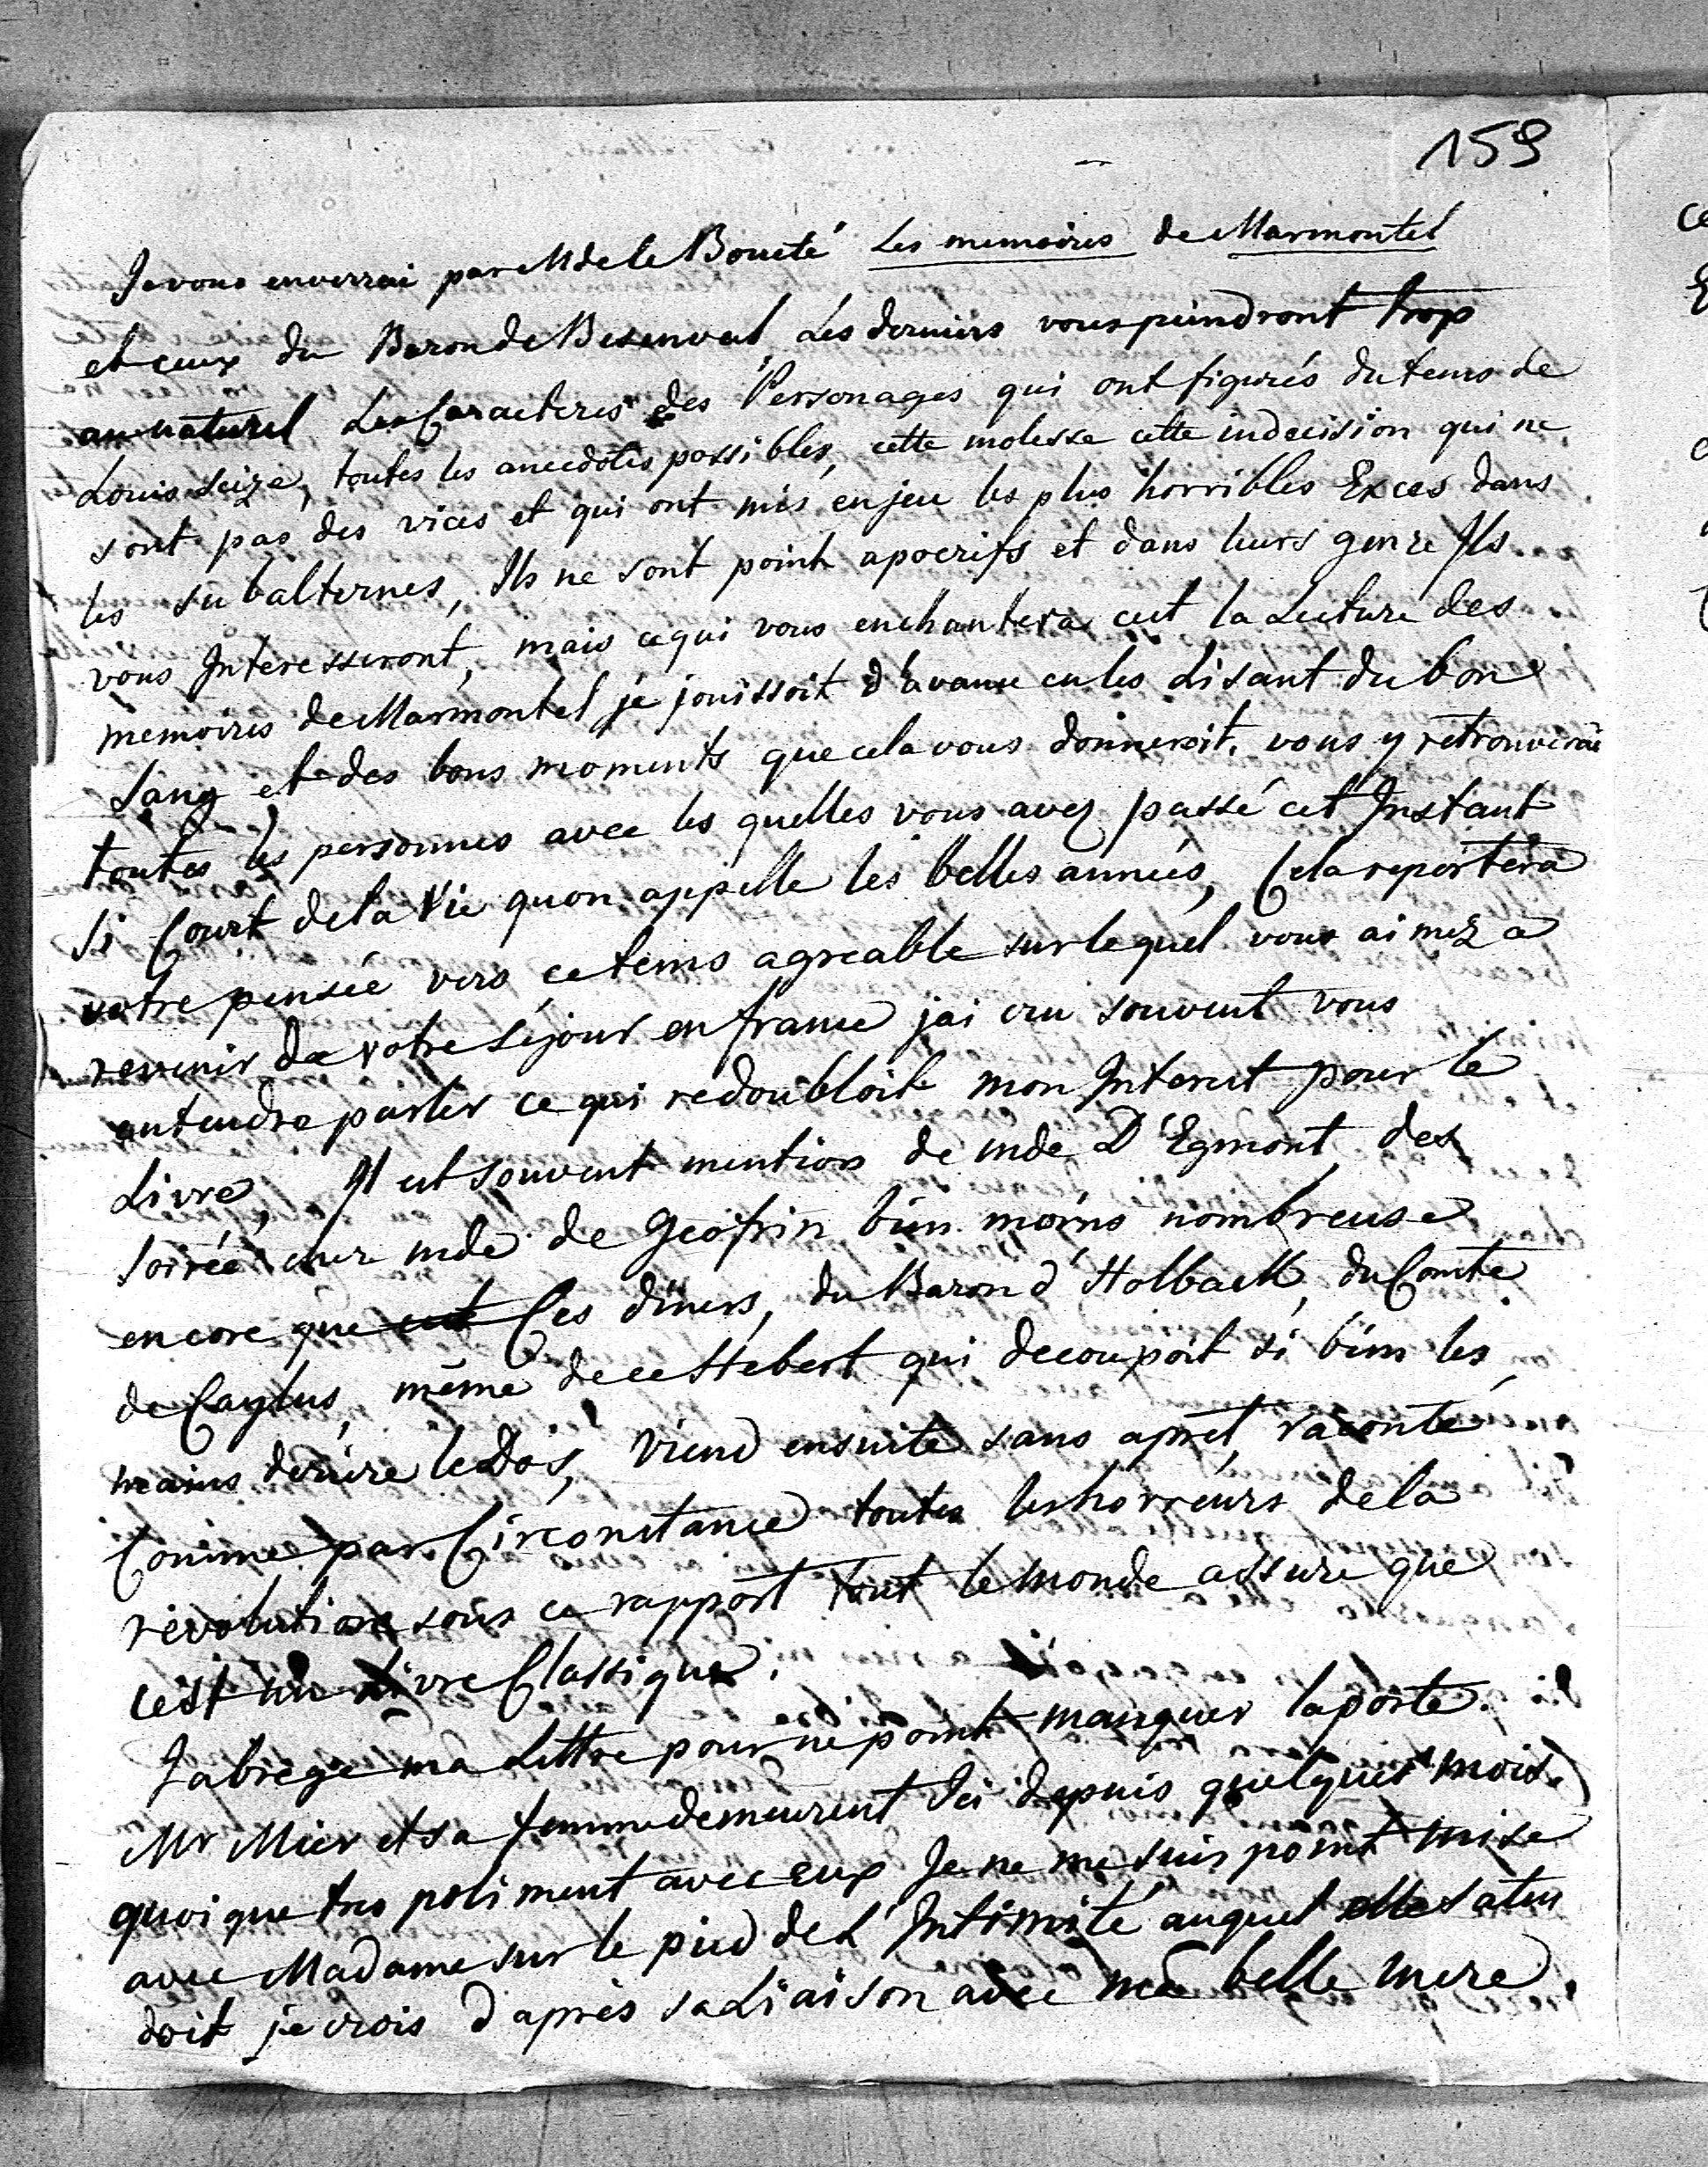 159
Je vous enverrai par Mde le Boueté Les memoires de Marmontel
et ceux du Baron de Besenval, Les derniers vous peindront trop
au naturel Les Caracteres des Personages qui ont figurés du tems de
Louis seize, toutes les anecdotes possibles, cette molesse cette indecision qui ne
sont pas des vices et qui ont mis en jeu les plus horribles Exces dans
les subalternes, Ils ne sont point apocrifs et dans leurs genre Ils
vous Interesseront, mais ce qui vous enchantera cest la Lecture des
memoires de Marmontel je jouissoit d'avance en les Lisant du bon
Sang et des bons moments que cela vous donneroit. vous y retrouveraé
toutes les personnes avec les quelles vous avez passé cet Instant
Si Court de la Vie quon appelle les belles années, Cela reportera
votre pensée vers ce tems agreable sur lequel vous aimez a
revenir de votre séjour en france jai cru souvent vous
entendre parler ce qui redoubloit mon Interest pour le
Livre, Il est souvent mention de mde D'Egmont, des
soirée chez mde de Geofrin bien moins nombreuse
encore que Ces diners, du Baron d'Holback, du Comte
de Caylus, même de ce Hebert qui decoupoit si bien les
mains deriere le Dos, Viend ensuite sans apret, raconté
Comme par Circonstance toutes les horreurs de la
revolution sous ce rapport tout le monde assure que
cest un Livre Classique.
Jabrege ma Lettre pour ne point manquer la poste.
Mr Mier et sa femme demeurent Ici depuis quelques mois
quoi que tres poliment avec eux Je ne me suis point mise
avec Madame sur le pied de L'Intimité auquel elle saten
doit je crois d'après sa Liaison avec ma belle mere.